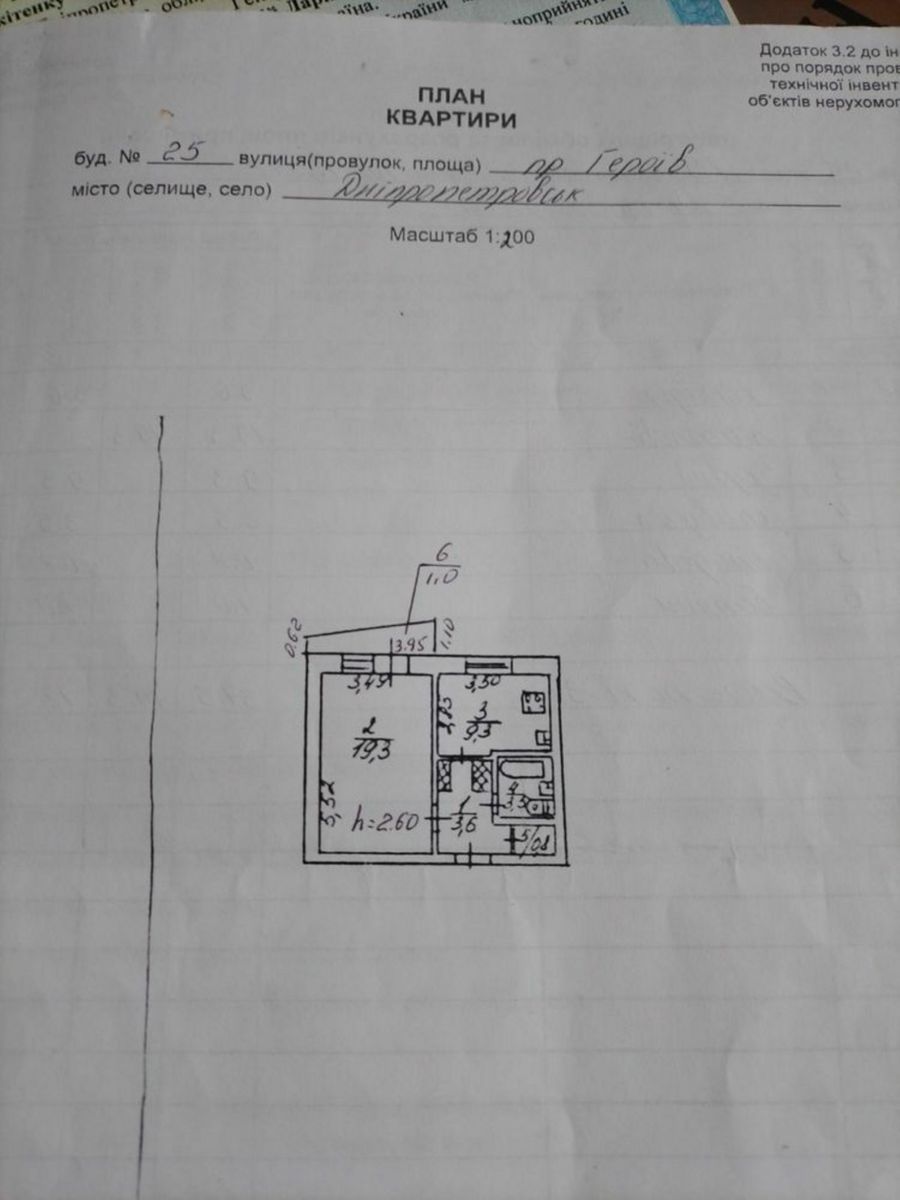 кітенку
Додаток 3.2 до ін
про порядок пров
технічної інвент
об'єктів нерухомог
ПЛАН
КВАРТИРИ
буд. № 25 вулиця(провулок, площа) пр Героїв
місто (селище, село) Дніпропетровськ
Масштаб 1:200
6
1.0
0.62
3.95
1.10
3,49
3,50
2
19,3
3
9,3
5,52
h=2.60
1
3,6
4
3,3
5/0,8